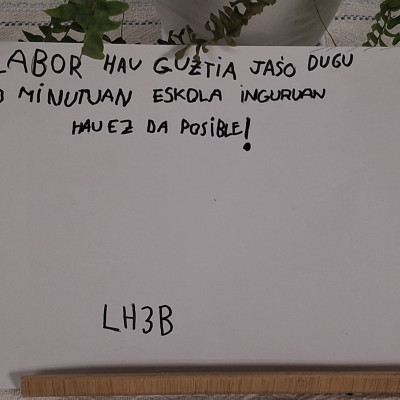 HAU GUZTIA JASO DUGU
MINUTUAN ESKOLA INGURUAN
HAU EZ DA POSIBLE!
LH3B